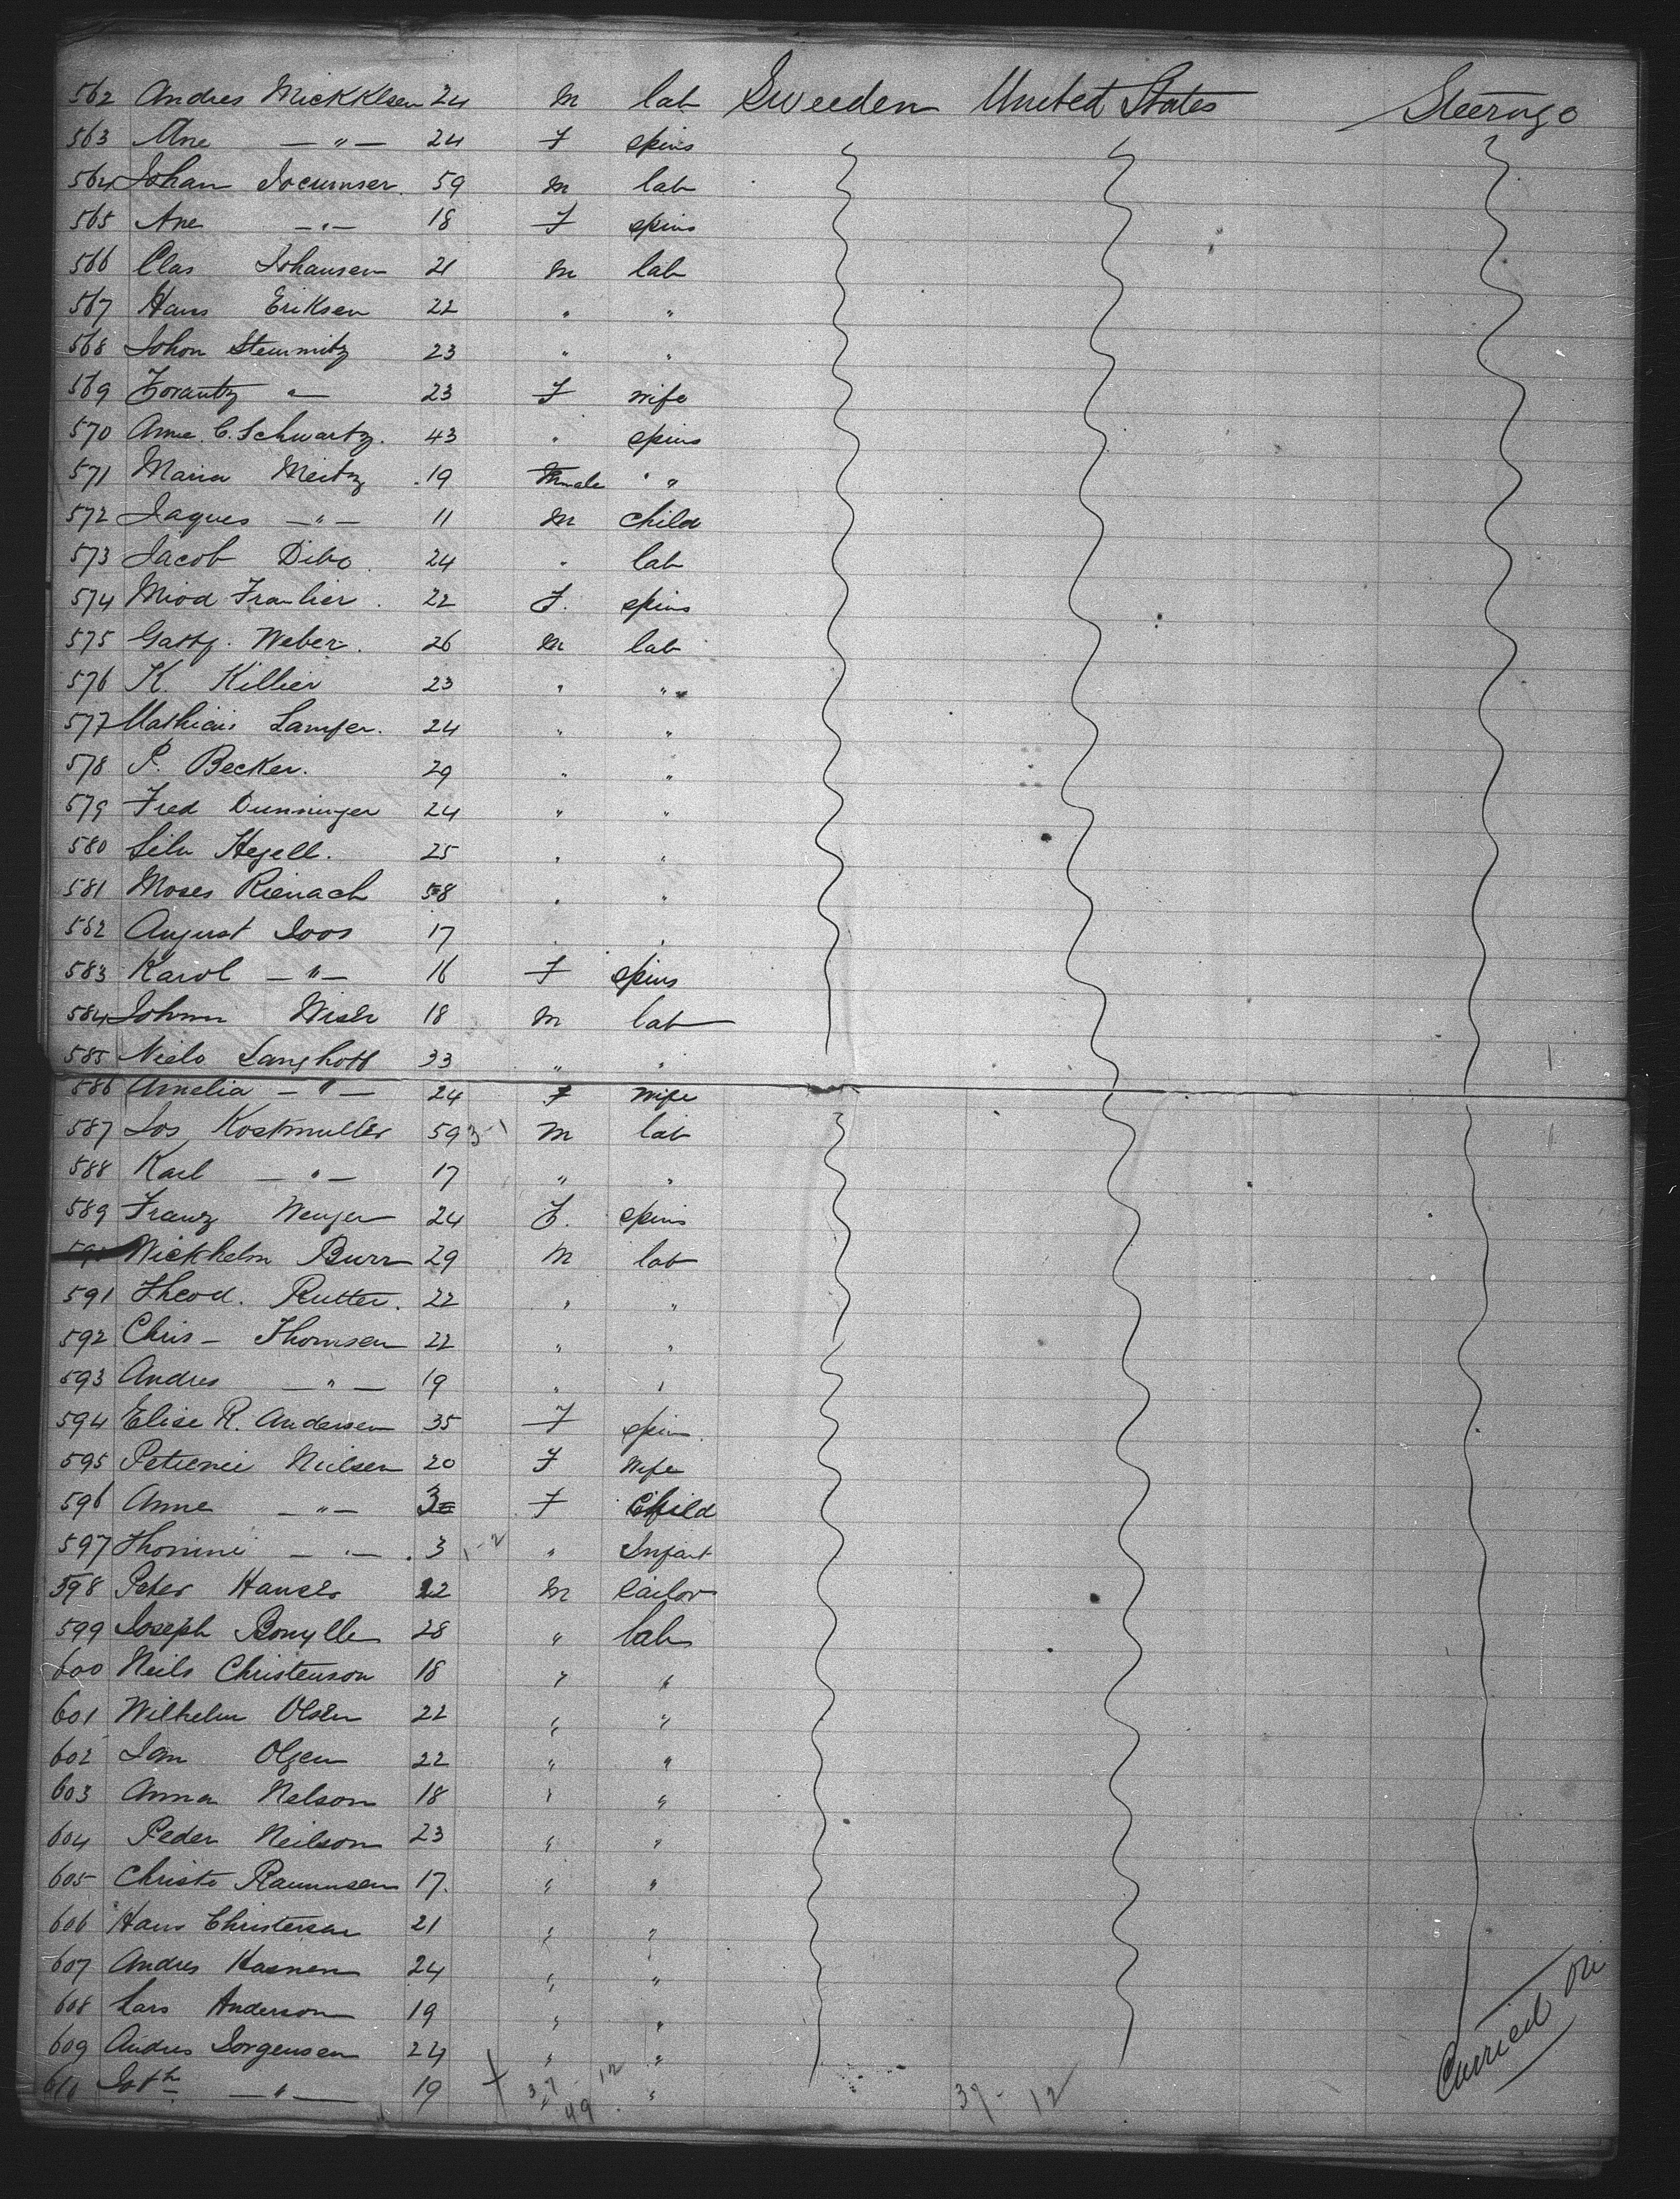 562 Andres Mickklsen 24 M lab Sweeden United States Steerage
563 Ane — " — 24 F spins
564 Johan Jocumser. 59 M lab
565 Ane — " — 18 F spins
566 Clas Johansen 21 M lab
567 Hans Eriksen 22 " "
568 Johon Stemmitz 23 " "
569 " — 23 F wife
570 Anne C. Schwartz. 43 " spins
571 Maria Meitz 19 Female " "
572 Jaques — " — 11 M Child
573 Jacob Dibo. 24 " lab
574 Miod Fraulier. 22 F. spins
575 Weber. 26 M lab
576 K. Killier 23 " "
577 Mathiais Lamfer. 24 " "
578 P. Becker. 29 " "
579 Fred Dunninger 24 " "
580 Hegell. 25 " "
581 Moses Rienach 58 " "
582 August Joos 17 " "
583 Karol — " — 16 F spins
584 Johann 18 M lab
585 Niels Langhoff 33 " "
586 Amelia — " — 24 F wife
587 Jos Kostmuller 59 3-1 M lab
588 Karl — " — 17 " "
589 Franz Wenger 24 F. spins
Wickhelm Burr 29 M lab
591 Theod. Rutter. 22 " "
592 Chris — Thomsen 22 " "
593 Andres — " — 19 " "
594 Elise R. Andersen 35 F spins
595 Petrenie Nielsen 20 F Wife
596 Anne — " — 3 F Child
597 — " — 3 1-2 " Infant
598 Peter Hansen 22 M Sailor
599 Joseph 28 " lab
600 Neils Christenson 18 " "
601 Wilhelm Olsen 22 " "
602 Olgen 22 " "
603 Anna Nelson 18 " "
604 Peder Neilson 23 " "
605 Christo Rasmussen 17. " "
606 Hans Christensen 21 " "
607 Andres 24 " "
608 Lars Anderson 19 " "
609 Andres Jorgensen 24 " "
610 — " — 19 " "
37 - 12
49
37 - 12
Carried on